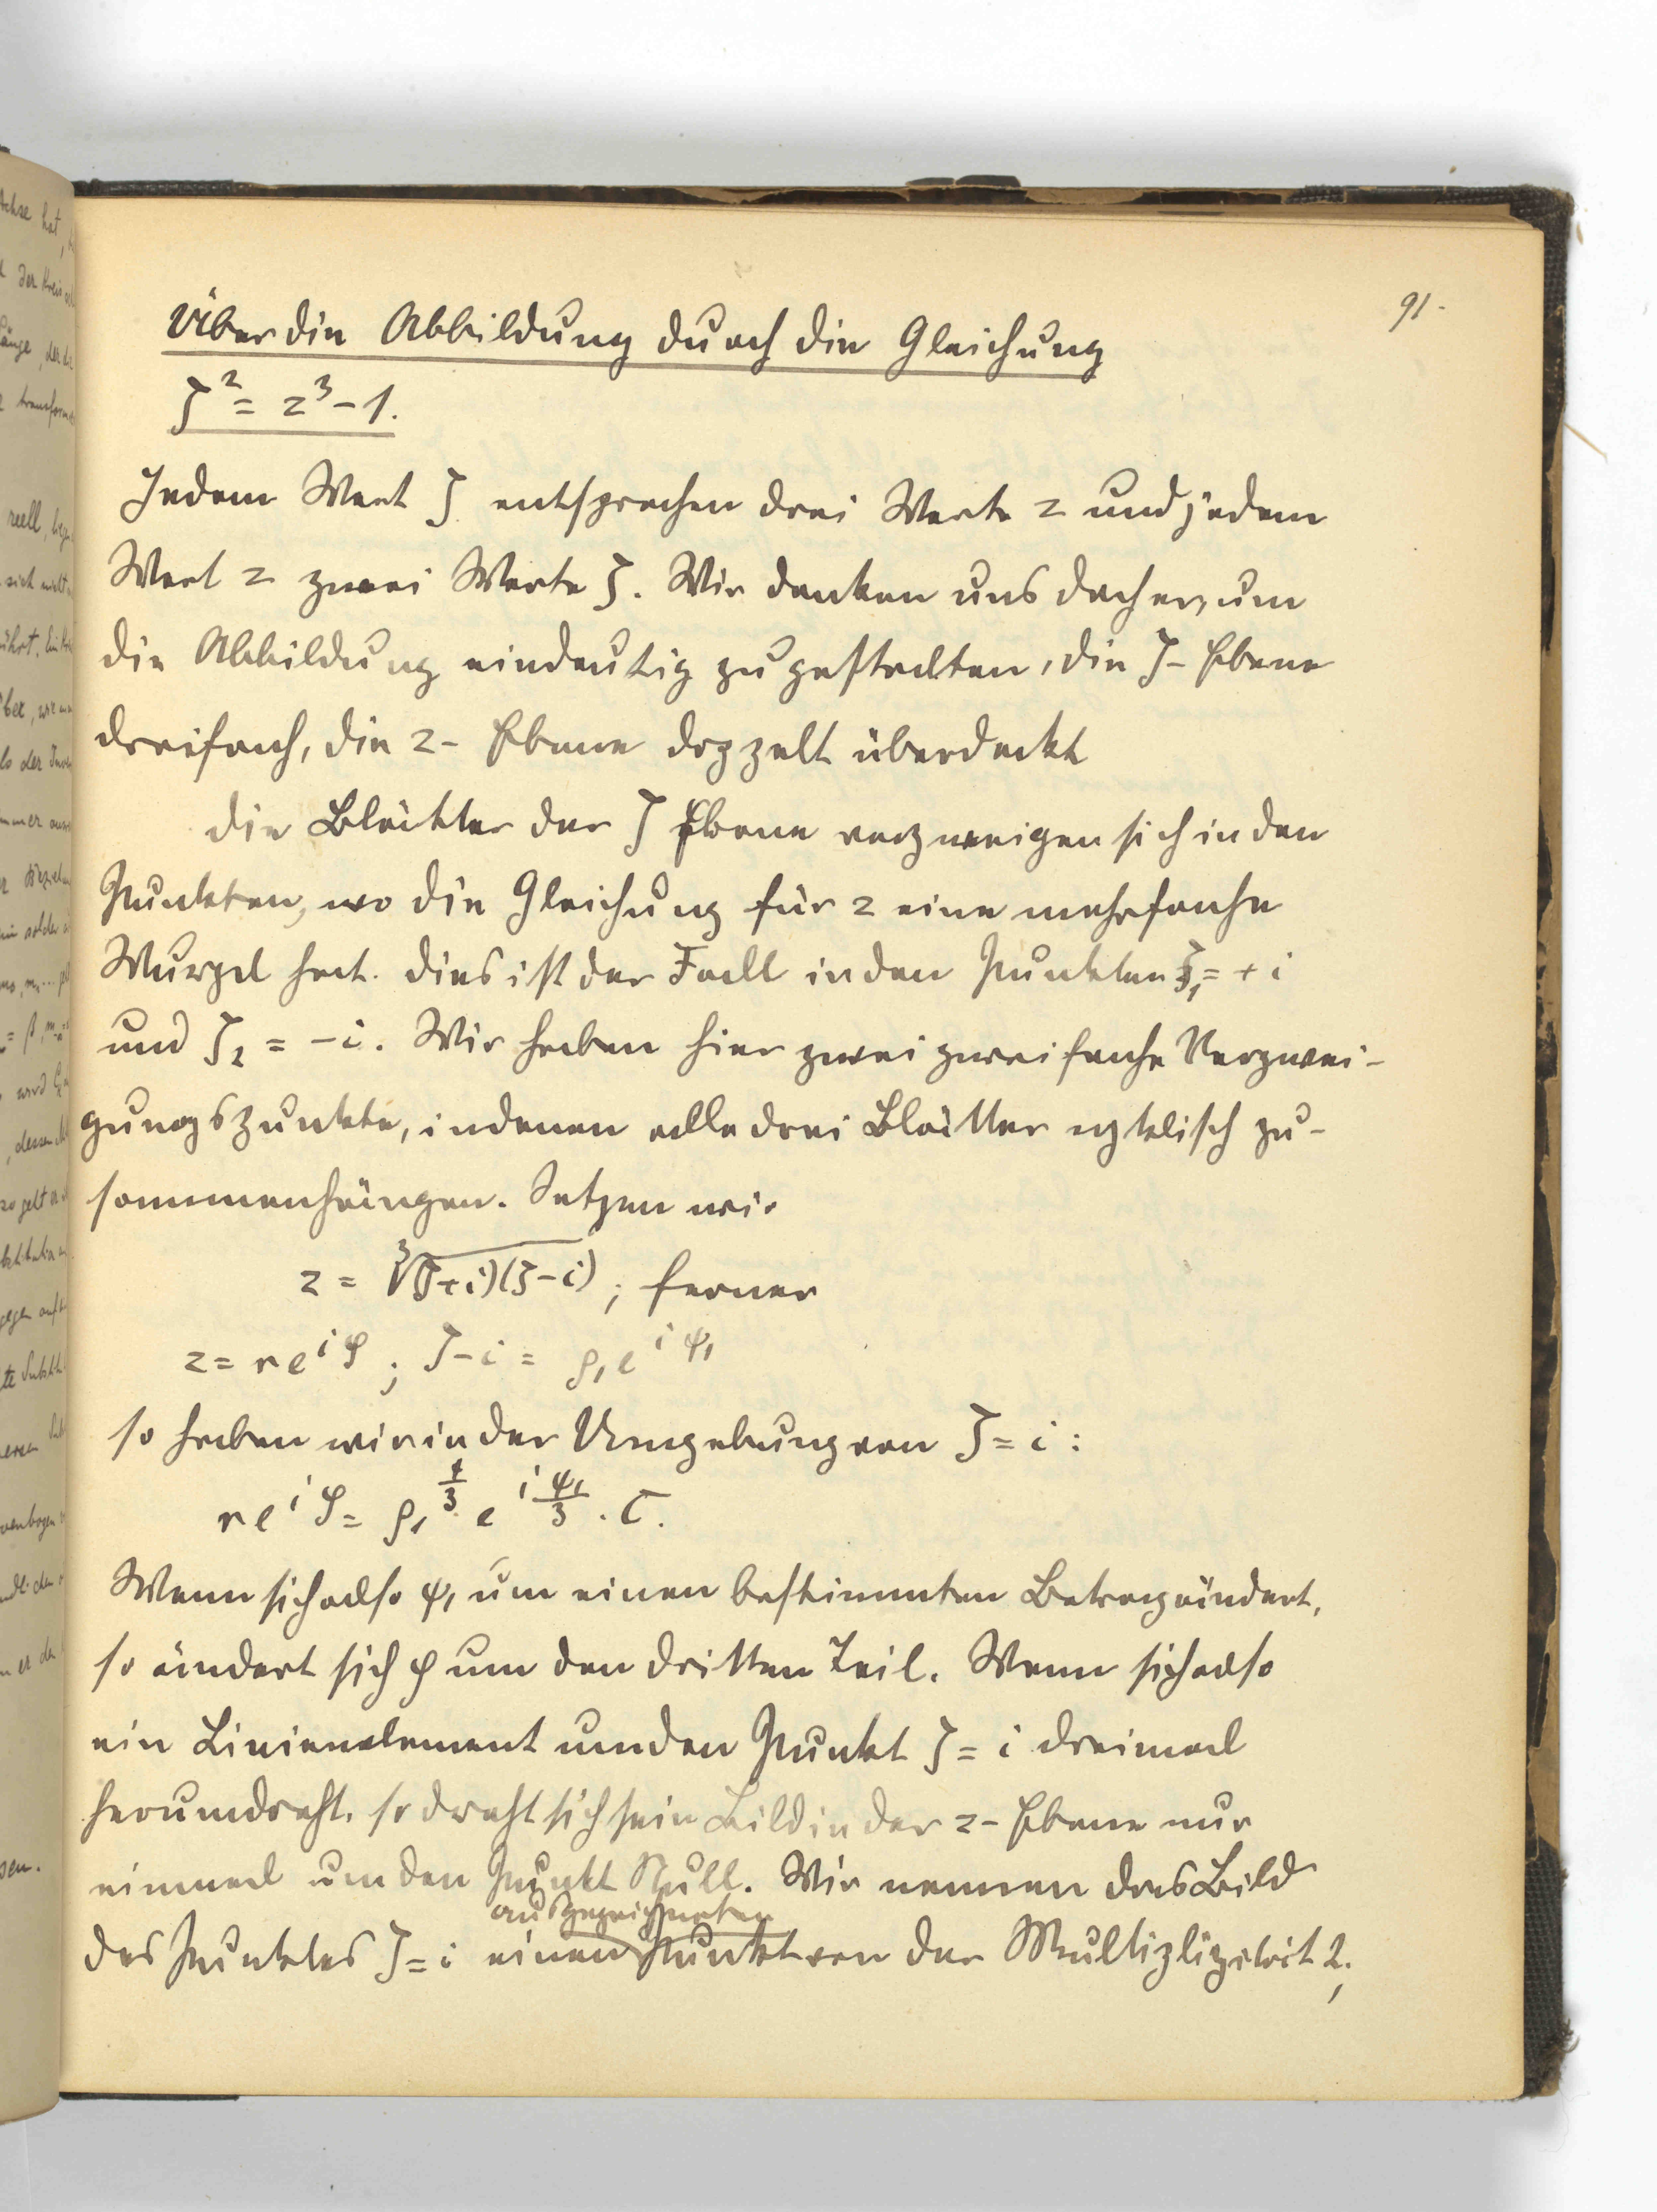 91.
Über die Abbildung durch die Gleichung
ζ² = z³ – 1.
Jedem Wert ζ entsprechen drei Werte z und jedem
Wert z zwei Werte ζ. Wir denken uns daher, um
die Abbildung eindeutig zu gestalten, die ζ- Ebene
dreifach, die z- Ebene doppelt überdeckt
Die Blätter der ζ Ebene verzweigen sich in den
Punkten, wo die Gleichung für z eine mehrfache
Wurzel hat. Dies ist der Fall in den Punkten ζ₁ = + i
und ζ₂ = – i. Wir haben hier zwei zweifache Verzwei-
gungspunkte, in denen alle drei Blätter zyklisch zu-
sammenhängen. Setzen wir
z = ∛(ζ+i)(ζ–i) ; ferner
z = r e^{iφ} ; ζ – i = ρ₁ e^{iψ₁}
so haben wir in der Umgebung von ζ = i :
r e^{iφ} = ρ₁^{1/3} e^{iψ₁/3} · C.
Wenn sich also ψ₁ um einen bestimmten Betrag ändert,
so ändert sich φ um den dritten Teil. Wenn sich also
ein Linienelement um den Punkt ζ = i dreimal
herumdreht, so dreht sich sein Bild in der z- Ebene nur
einmal um den Punkt Null. Wir nennen das Bild
ausgezeichneten
des Punktes ζ = i einen Punkt von der Multiplizität 2;